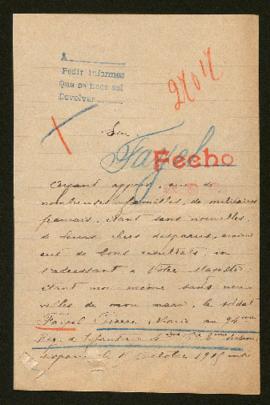 A
Pedir informes
Que se hace así
Devolver
27017
Sire
Fayel
Fecho
ayant appris que de
nombreuses familles, de militaires
français, étant sans nouvelles,
de leurs chers disparus, avaient
eu de bons résultats en
s'adressant à Votre Majesté
étant moi encore sans nou-
velles de mon mari, le soldat
Fayel
Rég. d'Infanterie
disparu le Octobre 1915